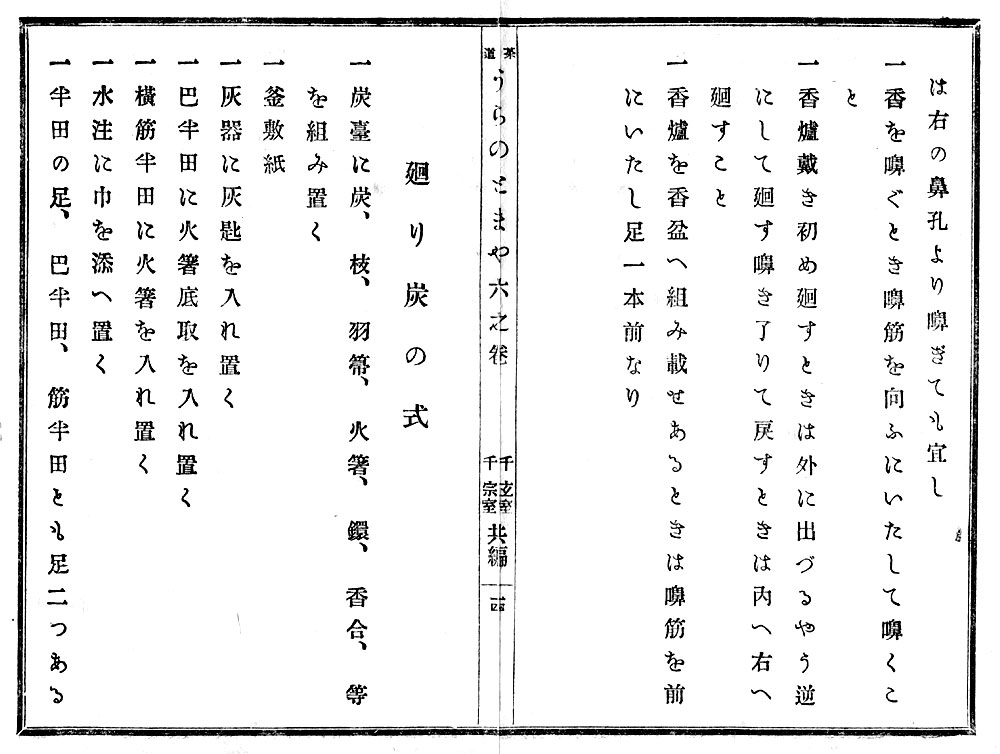 は右の鼻孔より嗅ぎても宜し
一香を嗅ぐとき嗅筋を向ふにいたして嗅くこ
と
一香爐戴き初め廻すときは外に出づるやう逆
にして廻す嗅き了りて戻すときは內へ右へ
廻すこと
一香爐を香盆へ組み載せあるときは嗅筋を前
にいたし足一本前なり
茶道 うらのとまや六之卷
千玄室
千宗室
共編
一四
廻り炭の式
一炭臺に炭、枝、羽箒、火箸、鐶、香合、等
を組み置く
一釜敷紙
一灰器に灰匙を入れ置く
一巴半田に火箸底取を入れ置く
一橫筋半田に火箸を入れ置く
一水注に巾を添へ置く
一半田の足、巴半田、筋半田とも足二つある